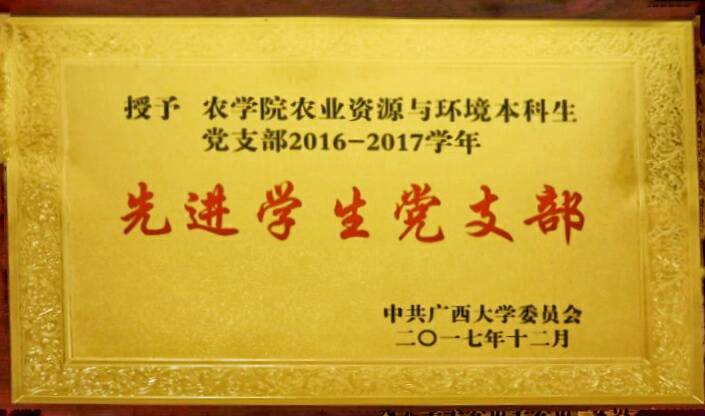 授予 农学院农业资源与环境本科生
党支部2016-2017学年
先进学生党支部
中共广西大学委员会
二〇一七年十二月